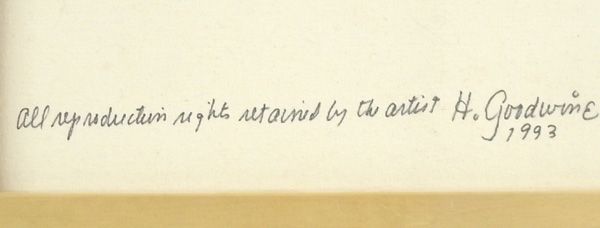 All reproduction rights retained by the artist H. Goodwine
1993